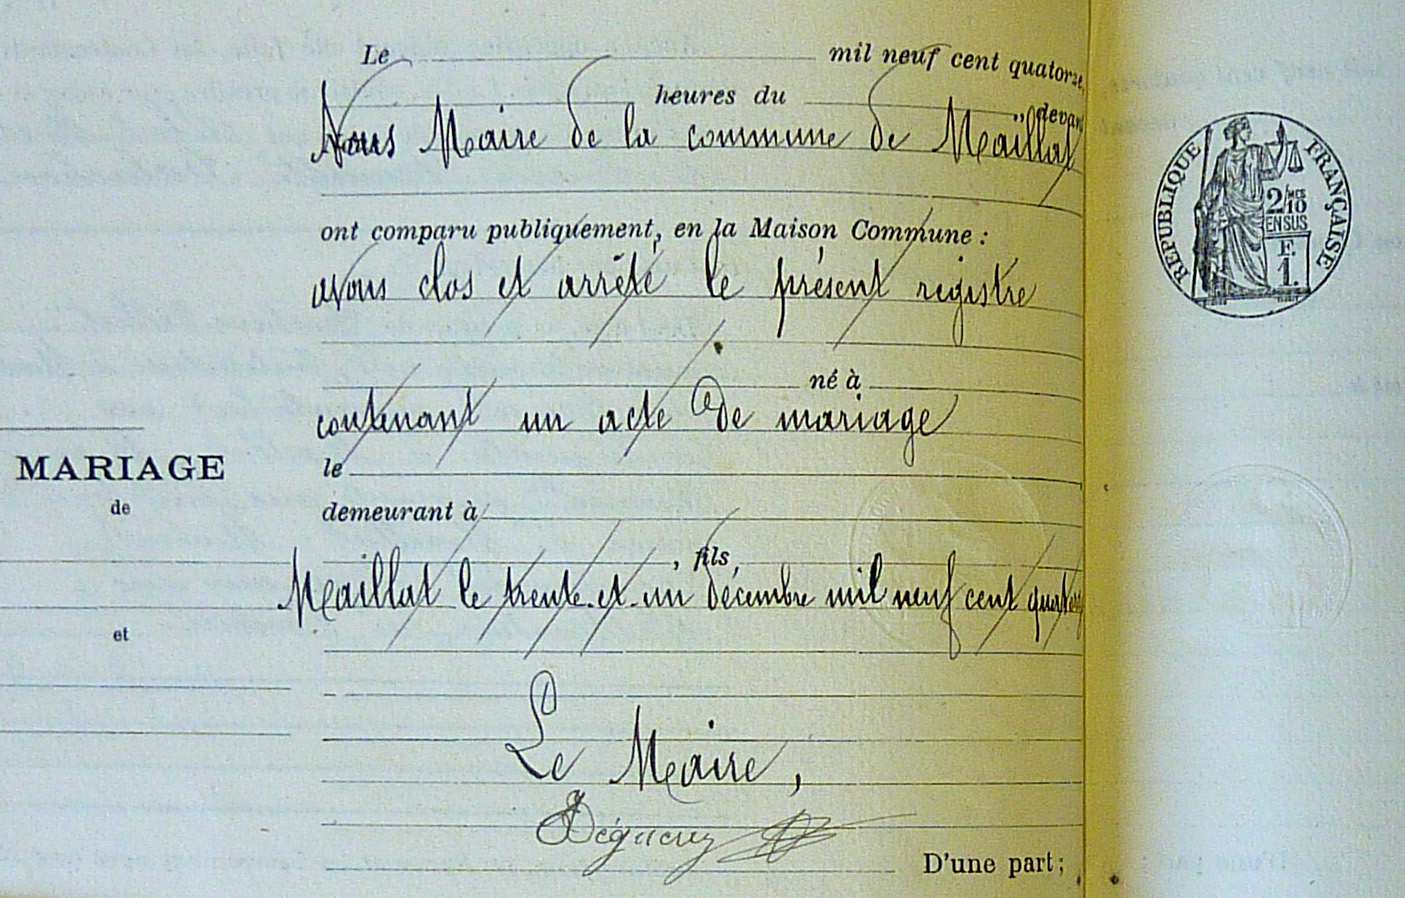 Le mil neuf cent quatorze,
heures du devant
Nous Maire de la commune de Maillat
ont comparu publiquement, en la Maison Commune :
avons clos et arrêté le présent registre
né à
contenant un acte de mariage
le
MARIAGE
de
demeurant à
, fils,
Maillat le trente et un décembre mil neuf cent quatorze
et
Le Maire,
D'une part ;
RÉPUBLIQUE FRANÇAISE
2/10 MES
EN SUS
F.
1.